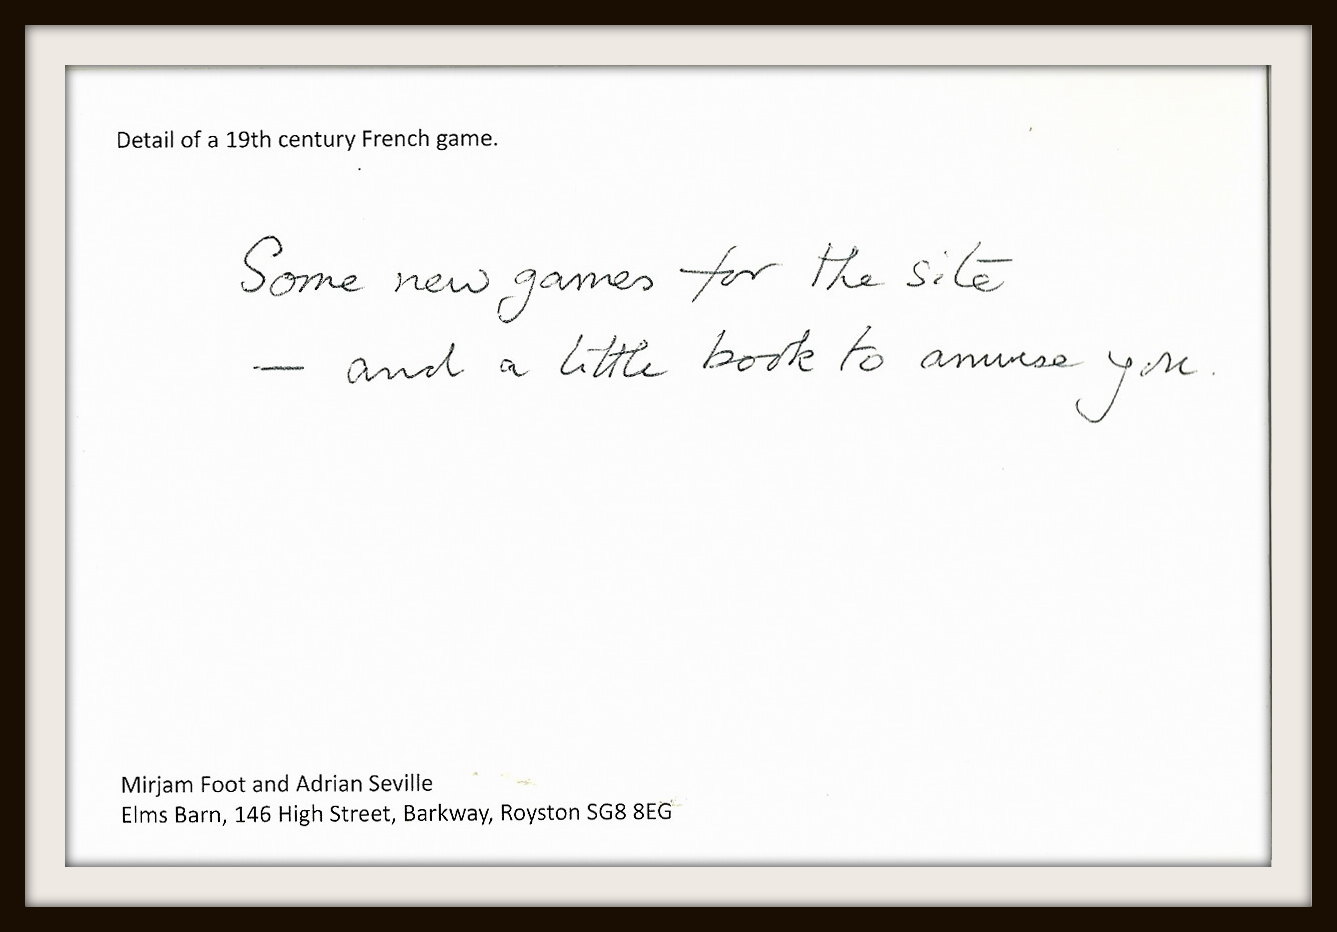 Detail of a 19th century French game.
Some new games for the site
— and a little book to amuse you.
Mirjam Foot and Adrian Seville
Elms Barn, 146 High Street, Barkway, Royston SG8 8EG